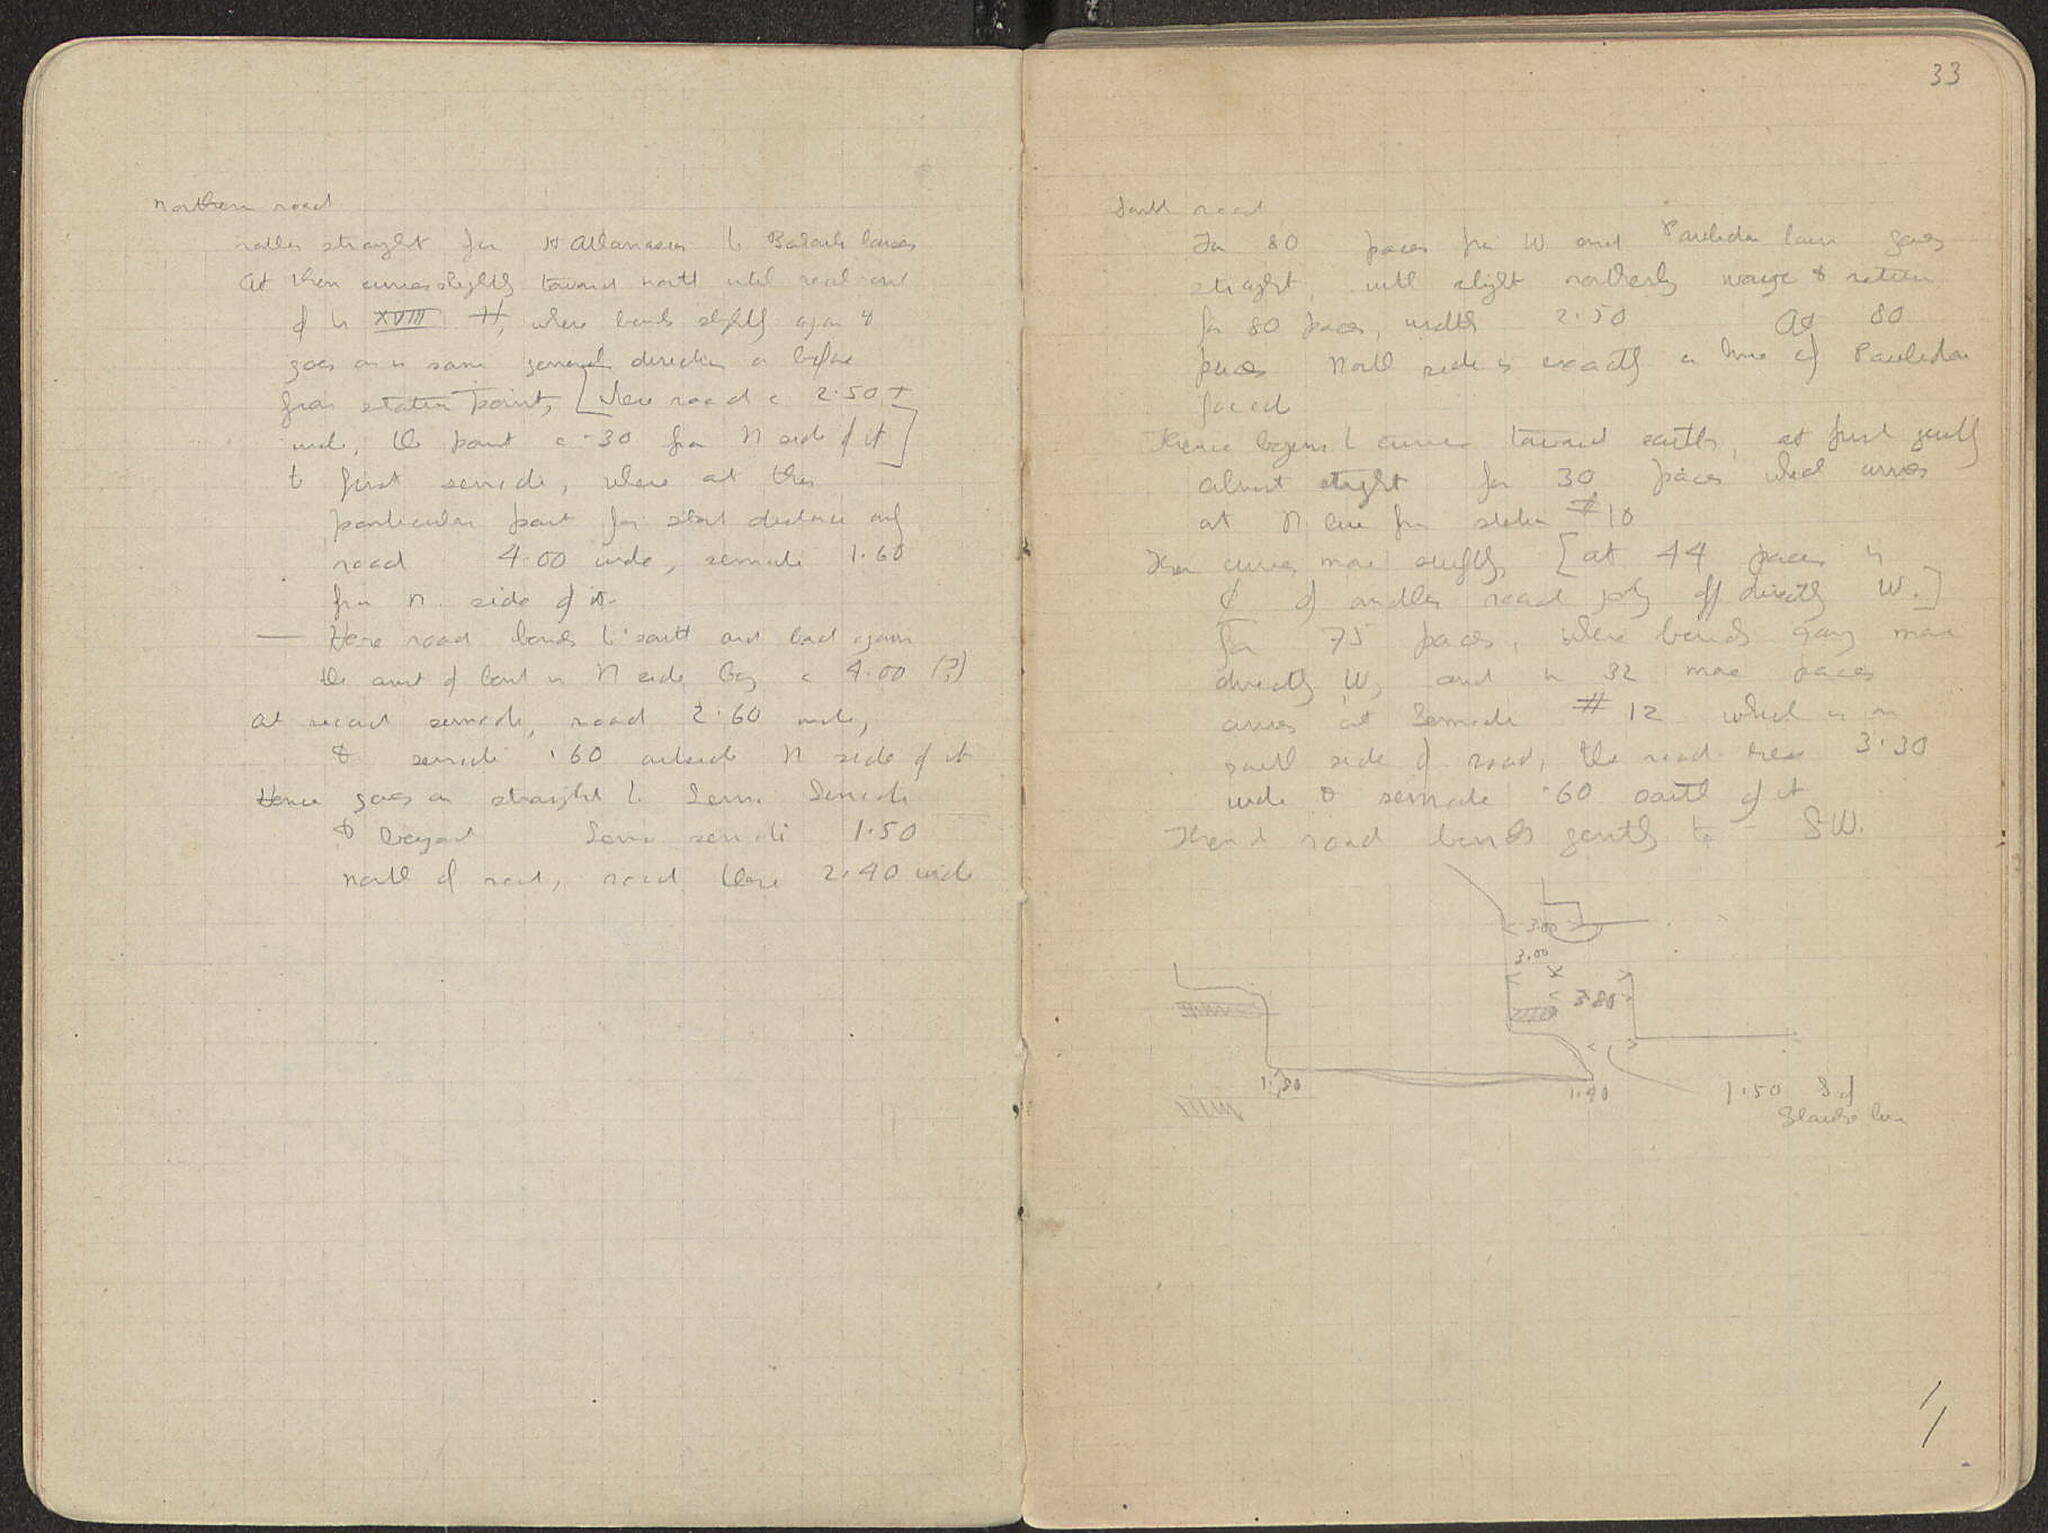 Northern road
rather straight from H Athanasios to Balaure houses
At then curves slightly toward north until road
of XVIII H, where bends slightly again &
goes on in same general direction as before
from station point, [where road c 2.50 +
wide, the point c .30 from N side of it]
to first semede, where at this
particular point for short distance only
road 4.00 wide, semede 1.60
from N. side of it.
— Here road bends to south and back again
the amt of bend in N side being c 4.00 (?)
At second semede, road 2.60 wide,
& semede .60 outside N side of it
Hence goes on straight to semede
& beyond semede 1.50
north of road, road there 2.40 wide
33
South road
For 80 paces from W end goes
straight, with slight northerly & return
for 80 paces, width 2.50 At 80
paces North side is exactly on line of
faced
Thence begins to curve toward south, at first gently
almost straight for 30 paces which
at N line from station # 10
Then curves more [at 44 paces is
¢ of road going off directly W.]
for 75 paces, where bends going more
directly W, and in 32 more paces
arrives at Semede # 12 which is on
south side of road, the road here 3.30
wide & semede .60 south of it
road bends gently to SW.
3.00
3.00
3.80
1.80
1.40
1.50 S of